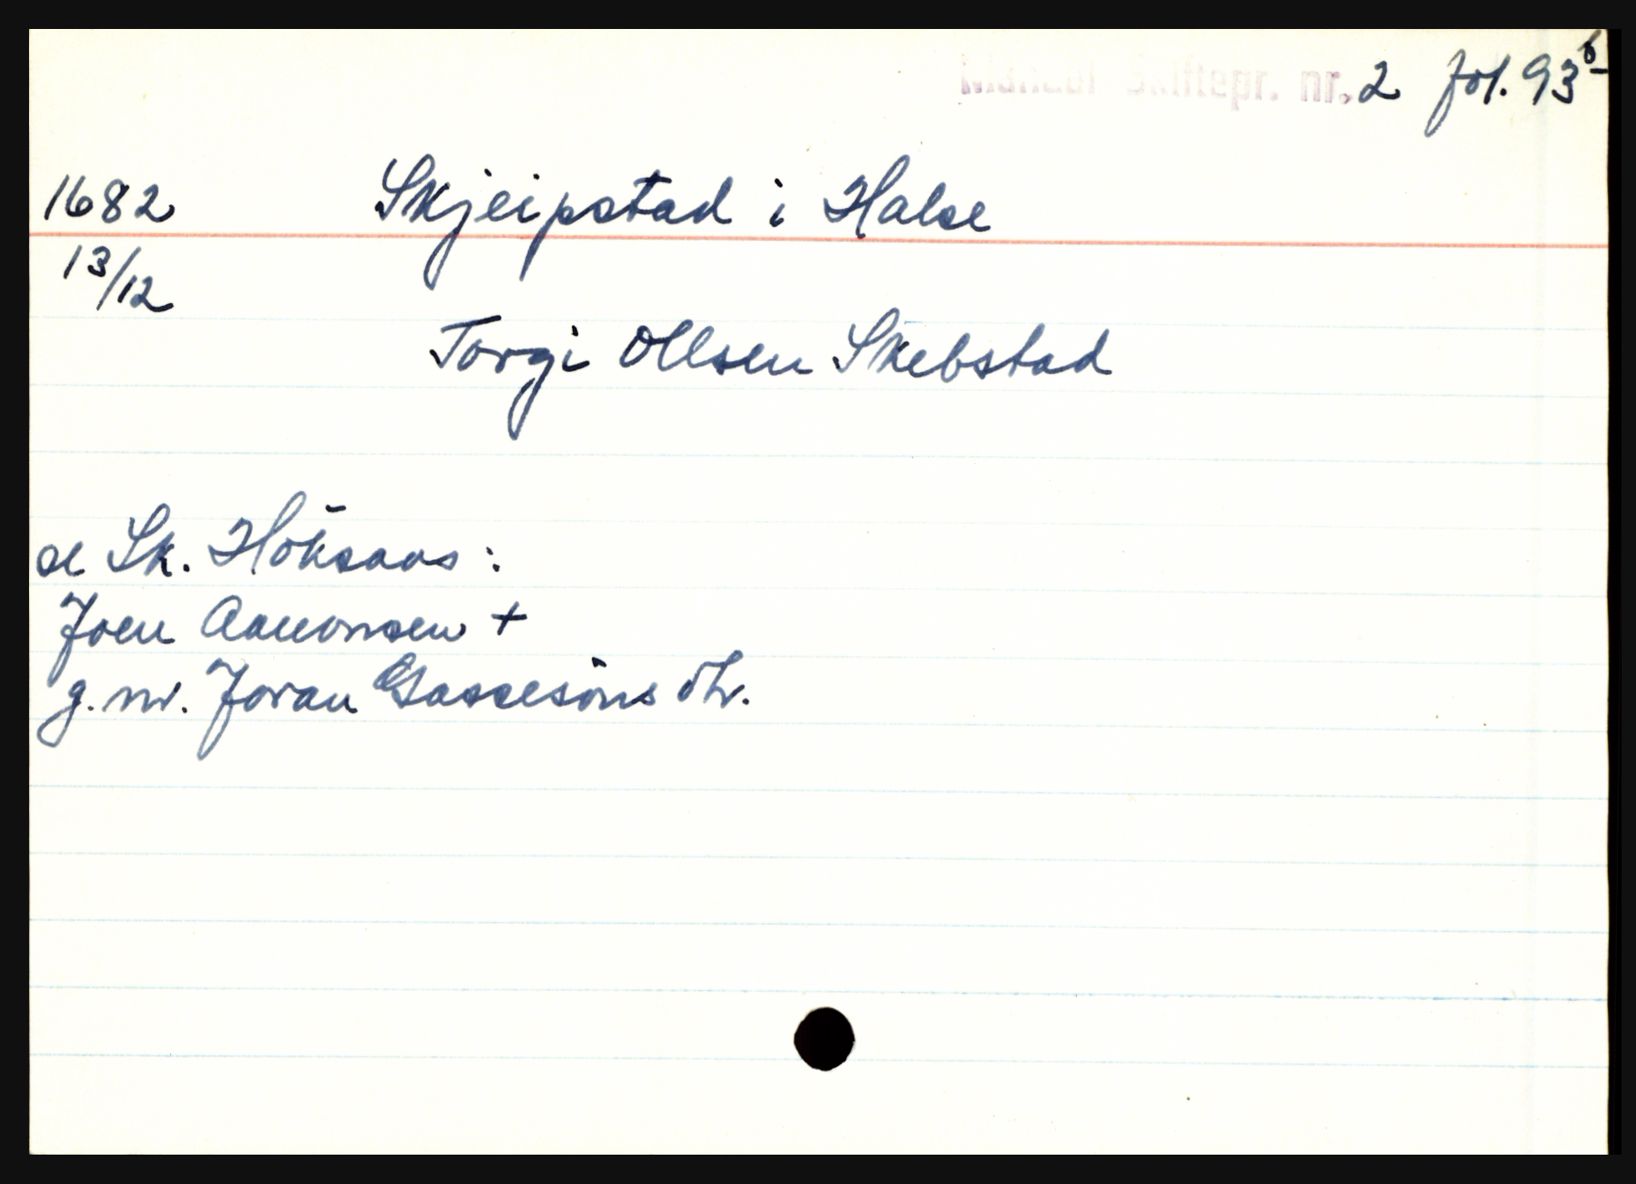 Mandal Skiftepr. nr. 2 fol. 93b
1682 Skjeipstad i Halse
13/12
Torgi Ollsen Skebstad
se Sk. Höksaas:
Joen Aamonsen +
g.m. Joran Gassesöns dtr.